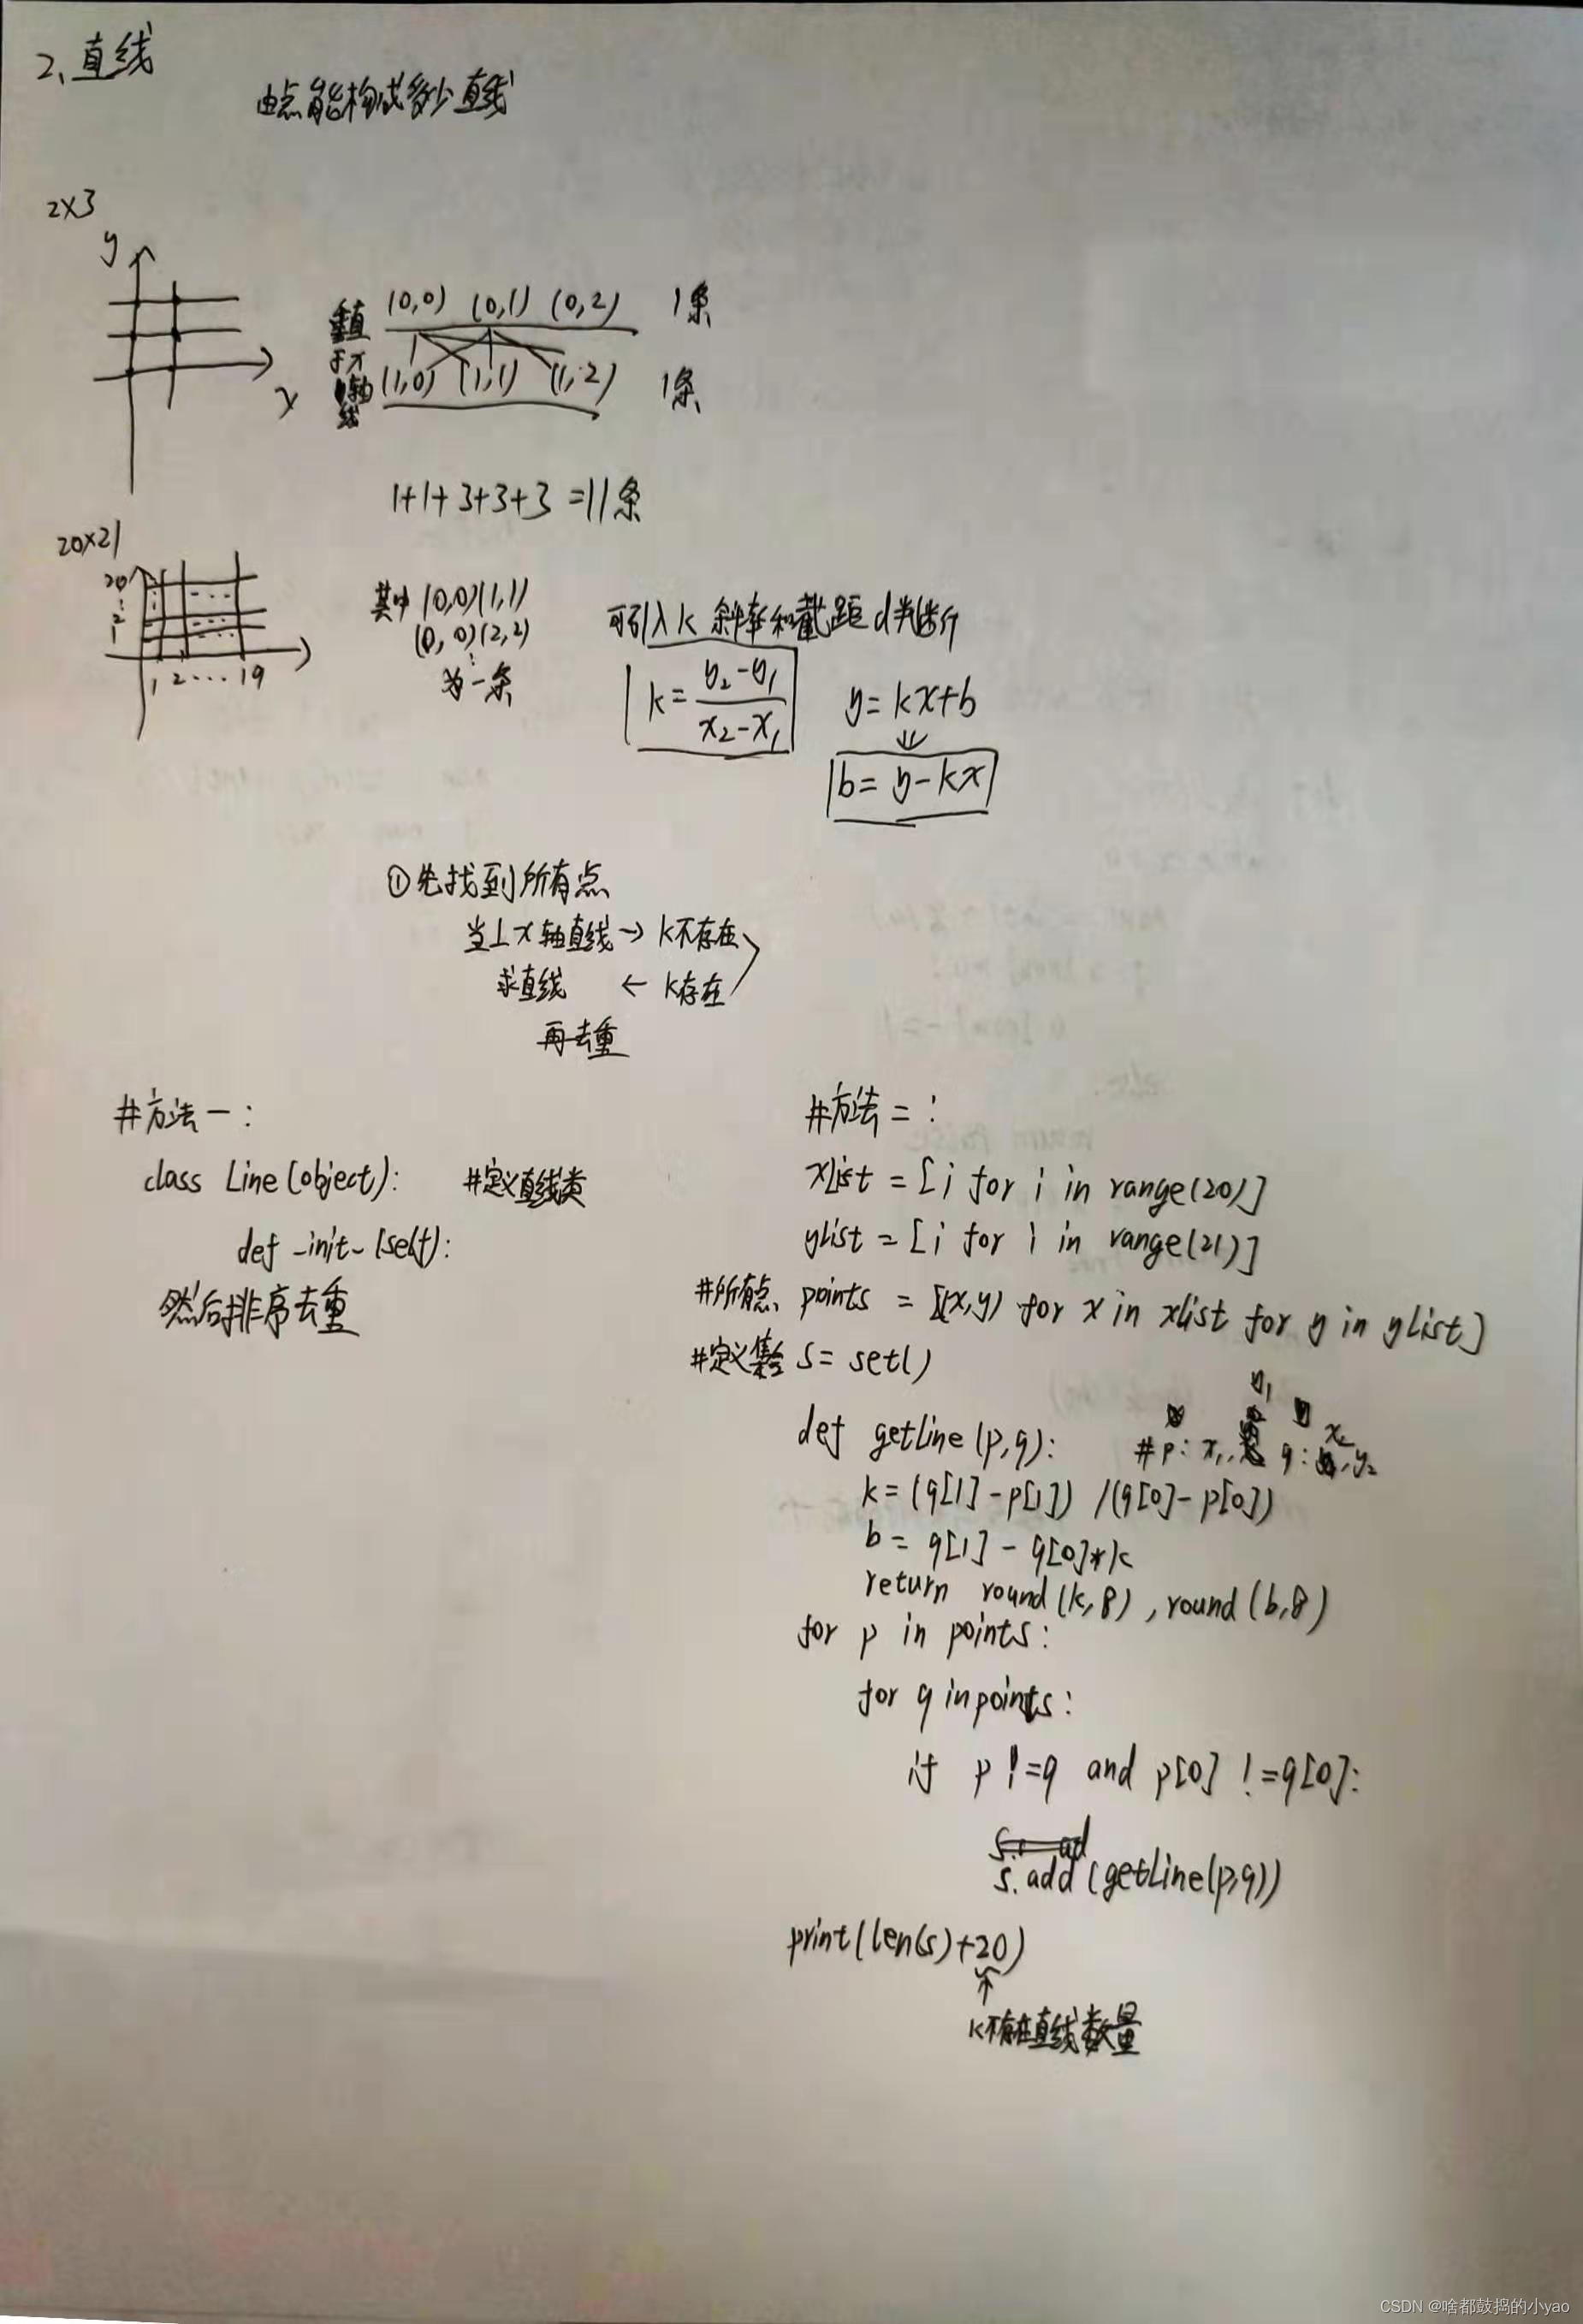 2、直线
由点能构成多少直线
2×3
y
x
垂直
于x
轴
线
(0,0) (0,1) (0,2) 1条
(1,0) (1,1) (1,2) 1条
1+1+3+3+3=11条
20×21
20
⋮
2
1
1 2 ... 19
其中(0,0)(1,1)
(0,0)(2,2)
⋮
为一条
可引入k 斜率和截距d判断
k=(y₂-y₁)/(x₂-x₁)
y=kx+b
⇓
b=y-kx
①先找到所有点
当⊥x轴直线→k不存在
求直线 ← k存在
再去重
#方法一:
class Line(object): #定义直线类
def _init_(self):
然后排序去重
#方法二:
xlist = [i for i in range(20)]
ylist = [i for i in range(21)]
#所有点 points = [(x,y) for x in xlist for y in ylist]
#定义集合 s = set()
def getline(p,q): #p:x₁,y₁ q:x₂,y₂
k=(q[1]-p[1])/(q[0]-p[0])
b=q[1]-q[0]*k
return round(k,8),round(b,8)
for p in points:
for q in points:
if p!=q and p[0]!=q[0]:
s.add(getline(p,q))
print(len(s)+20)
↑
k不存在直线数量
CSDN @啥都鼓捣的小yao